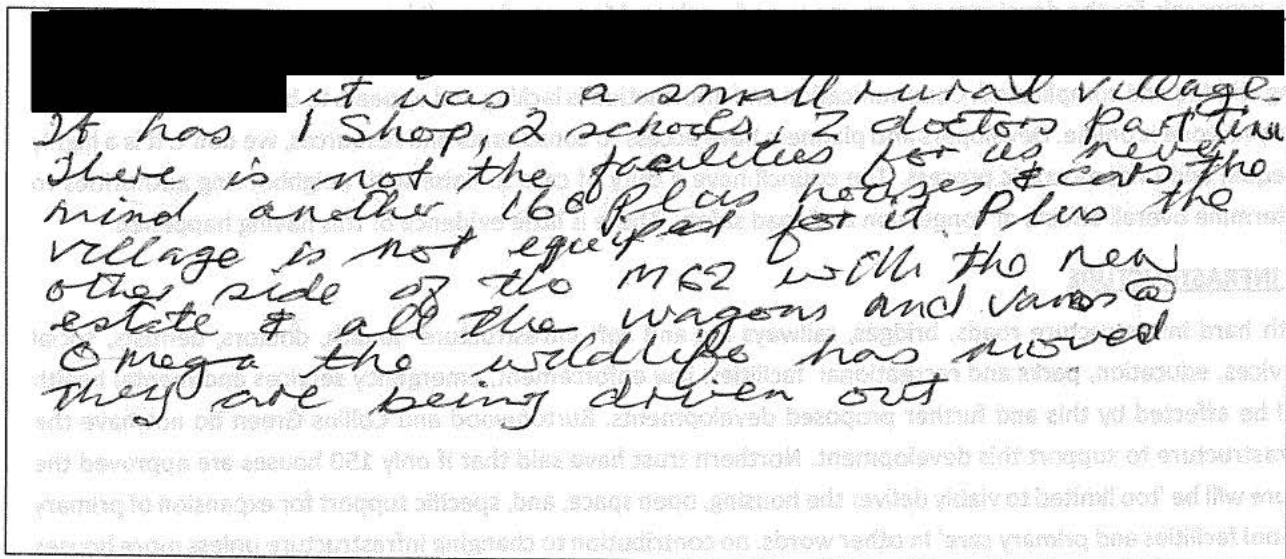 it was, a small rural village.
It has 1 Shop, 2 schools, 2 doctors Part time
There is not the facilities for us never
mind another 160 Plus houses & cars, the
village is not equiped for it Plus the
other side of the M62 with the new
estate & all the wagons and vans @
Omega the wildlife has moved
they are being driven out